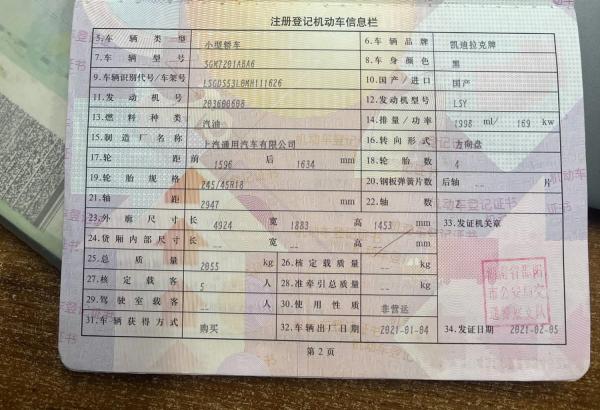 注册登记机动车信息栏
5.车辆类型 小型轿车 6.车辆品牌 凯迪拉克牌
7.车辆型号 SGM7201ABA6 8.车身颜色 黑
9.车辆识别代号/车架号 LSGDS53L8MH111626 10.国产/进口 国产
11.发动机号 203600608 12.发动机型号 LSY
13.燃料种类 汽油 14.排量/功率 1998 ml/ 169 kw
15.制造厂名称 上汽通用汽车有限公司 16.转向形式 方向盘
17.轮距 前 1596 后 1634 mm 18.轮胎数 4
19.轮胎规格 245/45R18 20.钢板弹簧片数 后轴 -- 片
21.轴距 2947 mm 22.轴数 2
23.外廓尺寸 长 4924 宽 1883 高 1453 mm 33.发证机关章
24.货厢内部尺寸 长 -- 宽 -- 高 -- mm
25.总质量 2055 kg 26.核定载质量 -- kg
27.核定载客 5 人 28.准牵引总质量 -- kg
29.驾驶室载客 -- 人 30.使用性质 非营运
31.车辆获得方式 购买 32.车辆出厂日期 2021-01-04 34.发证日期 2021-02-05
第2页